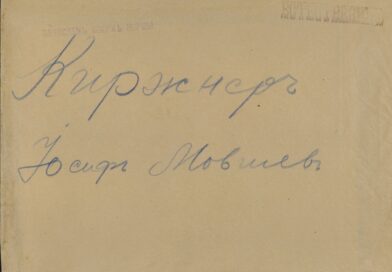 Киржнеръ
Іосифъ Мовшевъ